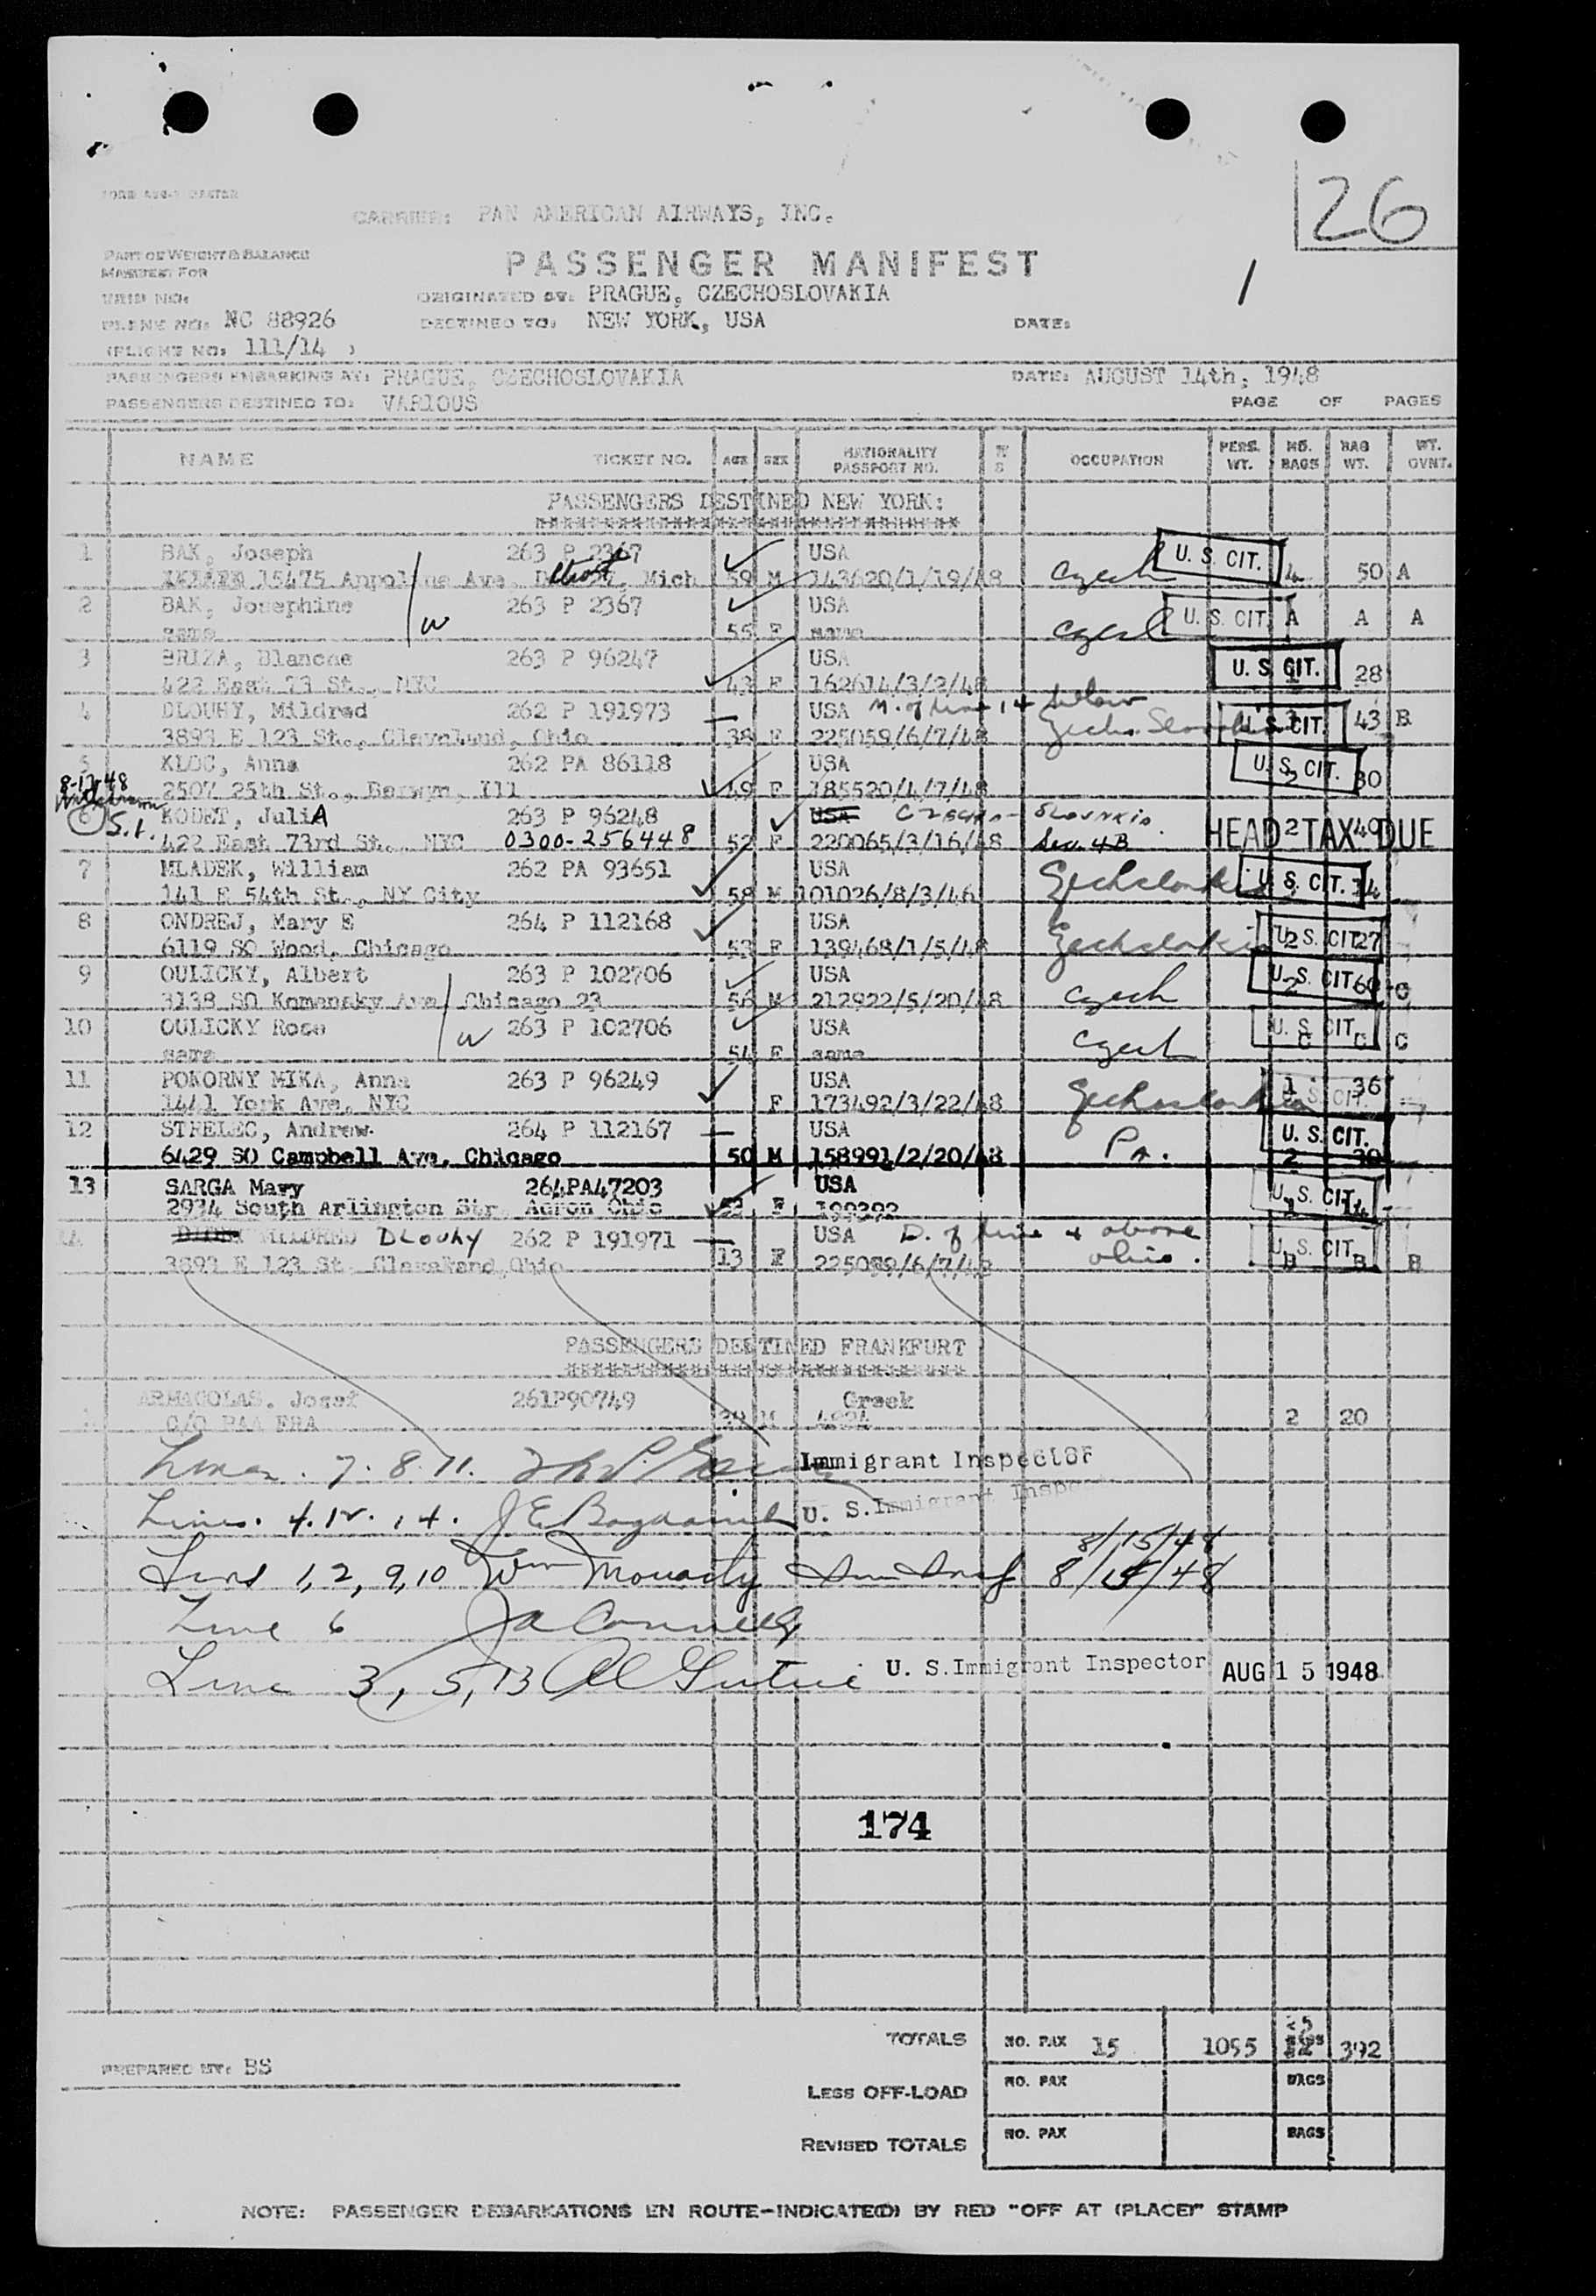 26
CARRIER: PAN AMERICAN AIRWAYS, INC.
PART OF WEIGHT & BALANCE
MANIFEST FOR
PASSENGER MANIFEST
1
TRIP NO:
ORIGINATED BY: PRAGUE, CZECHOSLOVAKIA
PLANE NO: NC 88926
DESTINED TO: NEW YORK, USA
DATE:
(FLIGHT NO: 111/14 )
PASSENGERS EMBARKING AT: PRAGUE, CZECHOSLOVAKIA DATE: AUGUST 14th, 1948
PASSENGERS DESTINED TO: VARIOUS PAGE OF PAGES
NAME TICKET NO. AGE SEX NATIONALITY PASSPORT NO. OCCUPATION PERS. WT. NO. BAGS BAG WT. WT. OVNT.
PASSENGERS DESTINED NEW YORK:
1 BAK, Joseph 263 P 2367 USA U. S. CIT.
15475 Appoline Ave, Detroit, Mich 59 M 143620/1/19/48 Czech 4 50 A
2 BAK, Josephine 263 P 2367 USA U. S. CIT. A A A
same W 55 F same Czech
3 BRIZA, Blanche 263 P 96247 USA U. S. CIT. 28
422 East 73 St., NYC 43 F 162614/3/3/48
4 DLOUHY, Mildred 262 P 191973 USA M. of line 14 below
3893 E 123 St., Cleveland, Ohio 38 F 225059/6/7/48 U. S. CIT. 43 B
5 KLOC, Anna 262 PA 86118 USA U. S. CIT. 2 30
8-17-48
2507 25th St., Berwyn, Ill 49 F 185520/4/7/48
6 KODET, JuliA 263 P 96248 USA CZECHO-SLOVAKIA
S.I. 422 East 73rd St., NYC 0300-256448 52 F 220065/3/16/48 Sec. 4B HEAD TAX DUE 2 40
7 MLADEK, William 262 PA 93651 USA
141 E 54th St., NY City 58 M 101026/8/3/46 Czechslovakia U. S. CIT. 14
8 ONDREJ, Mary E 264 P 112168 USA
6119 SO Wood, Chicago 53 F 139468/1/5/48 Czechslovakia U. S. CIT. 2 27
9 OULICKY, Albert 263 P 102706 USA
3138 SO Komensky Ave, Chicago 23 56 M 212922/5/20/48 Czech U. S. CIT. 2 60 C
10 OULICKY Rose W 263 P 102706 USA U. S. CIT. C C C
same 54 F same Czech
11 POKORNY MIKA, Anna 263 P 96249 USA 1 36
1441 York Ave, NYC F 173492/3/22/48 Czechoslovakia U. S. CIT.
12 STRELEC, Andrew 264 P 112167 USA
6429 SO Campbell Ave, Chicago 50 M 158991/2/20/48 Pa. U. S. CIT. 2 30
13 SARGA Mary 264PA47203 USA
2934 South Arlington Str Akron Ohio 52 F 199392 U. S. CIT. 1 14
MILDRED DLOUHY 262 P 191971 USA D. of line 4 above
3893 E 123 St. Cleveland, Ohio 13 F 225059/6/7/48 Ohio. U. S. CIT. B B B
PASSENGERS DESTINED FRANKFURT
ARMAGOLAS, Josef 261P90749 Greek
C/O PAA FRA M 2 20
Lines. 7. 8. 11. Immigrant Inspector
Lines. 4. 12. 14. U. S. Immigrant Inspec
8/15/48
Lines 1, 2, 9, 10 Wm 8/15/48
Line 6
Line 3, 5, 13 U. S. Immigrant Inspector AUG 15 1948
174
TOTALS NO. PAX 15 1095 392
PREPARED BY: BS
LESS OFF-LOAD NO. PAX BAGS
REVISED TOTALS NO. PAX BAGS
NOTE: PASSENGER DEBARKATIONS EN ROUTE-INDICATE(D) BY RED "OFF AT (PLACE)" STAMP